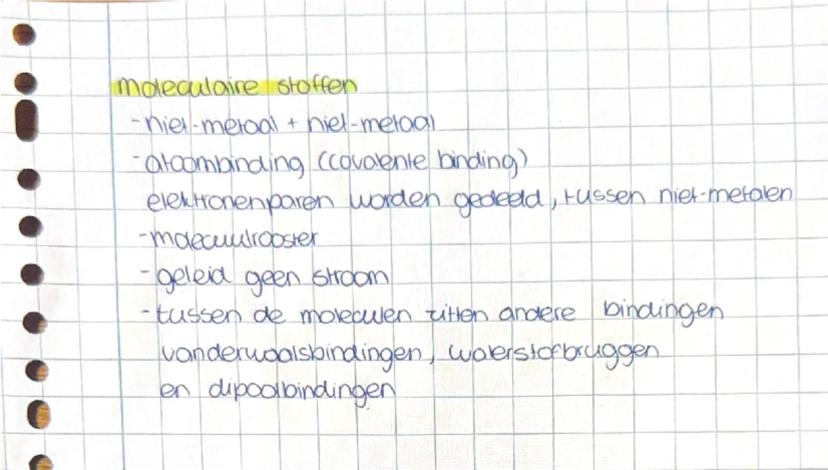 moleculaire stoffen
- niet-metaal + niet-metaal
- atoombinding (covalente binding)
elektronenparen worden gedeeld, tussen niet-metalen
- molecuulrooster
- geleid geen stroom
- tussen de moleculen zitten andere bindingen
vanderwaalsbindingen, waterstofbruggen
en dipoolbindingen